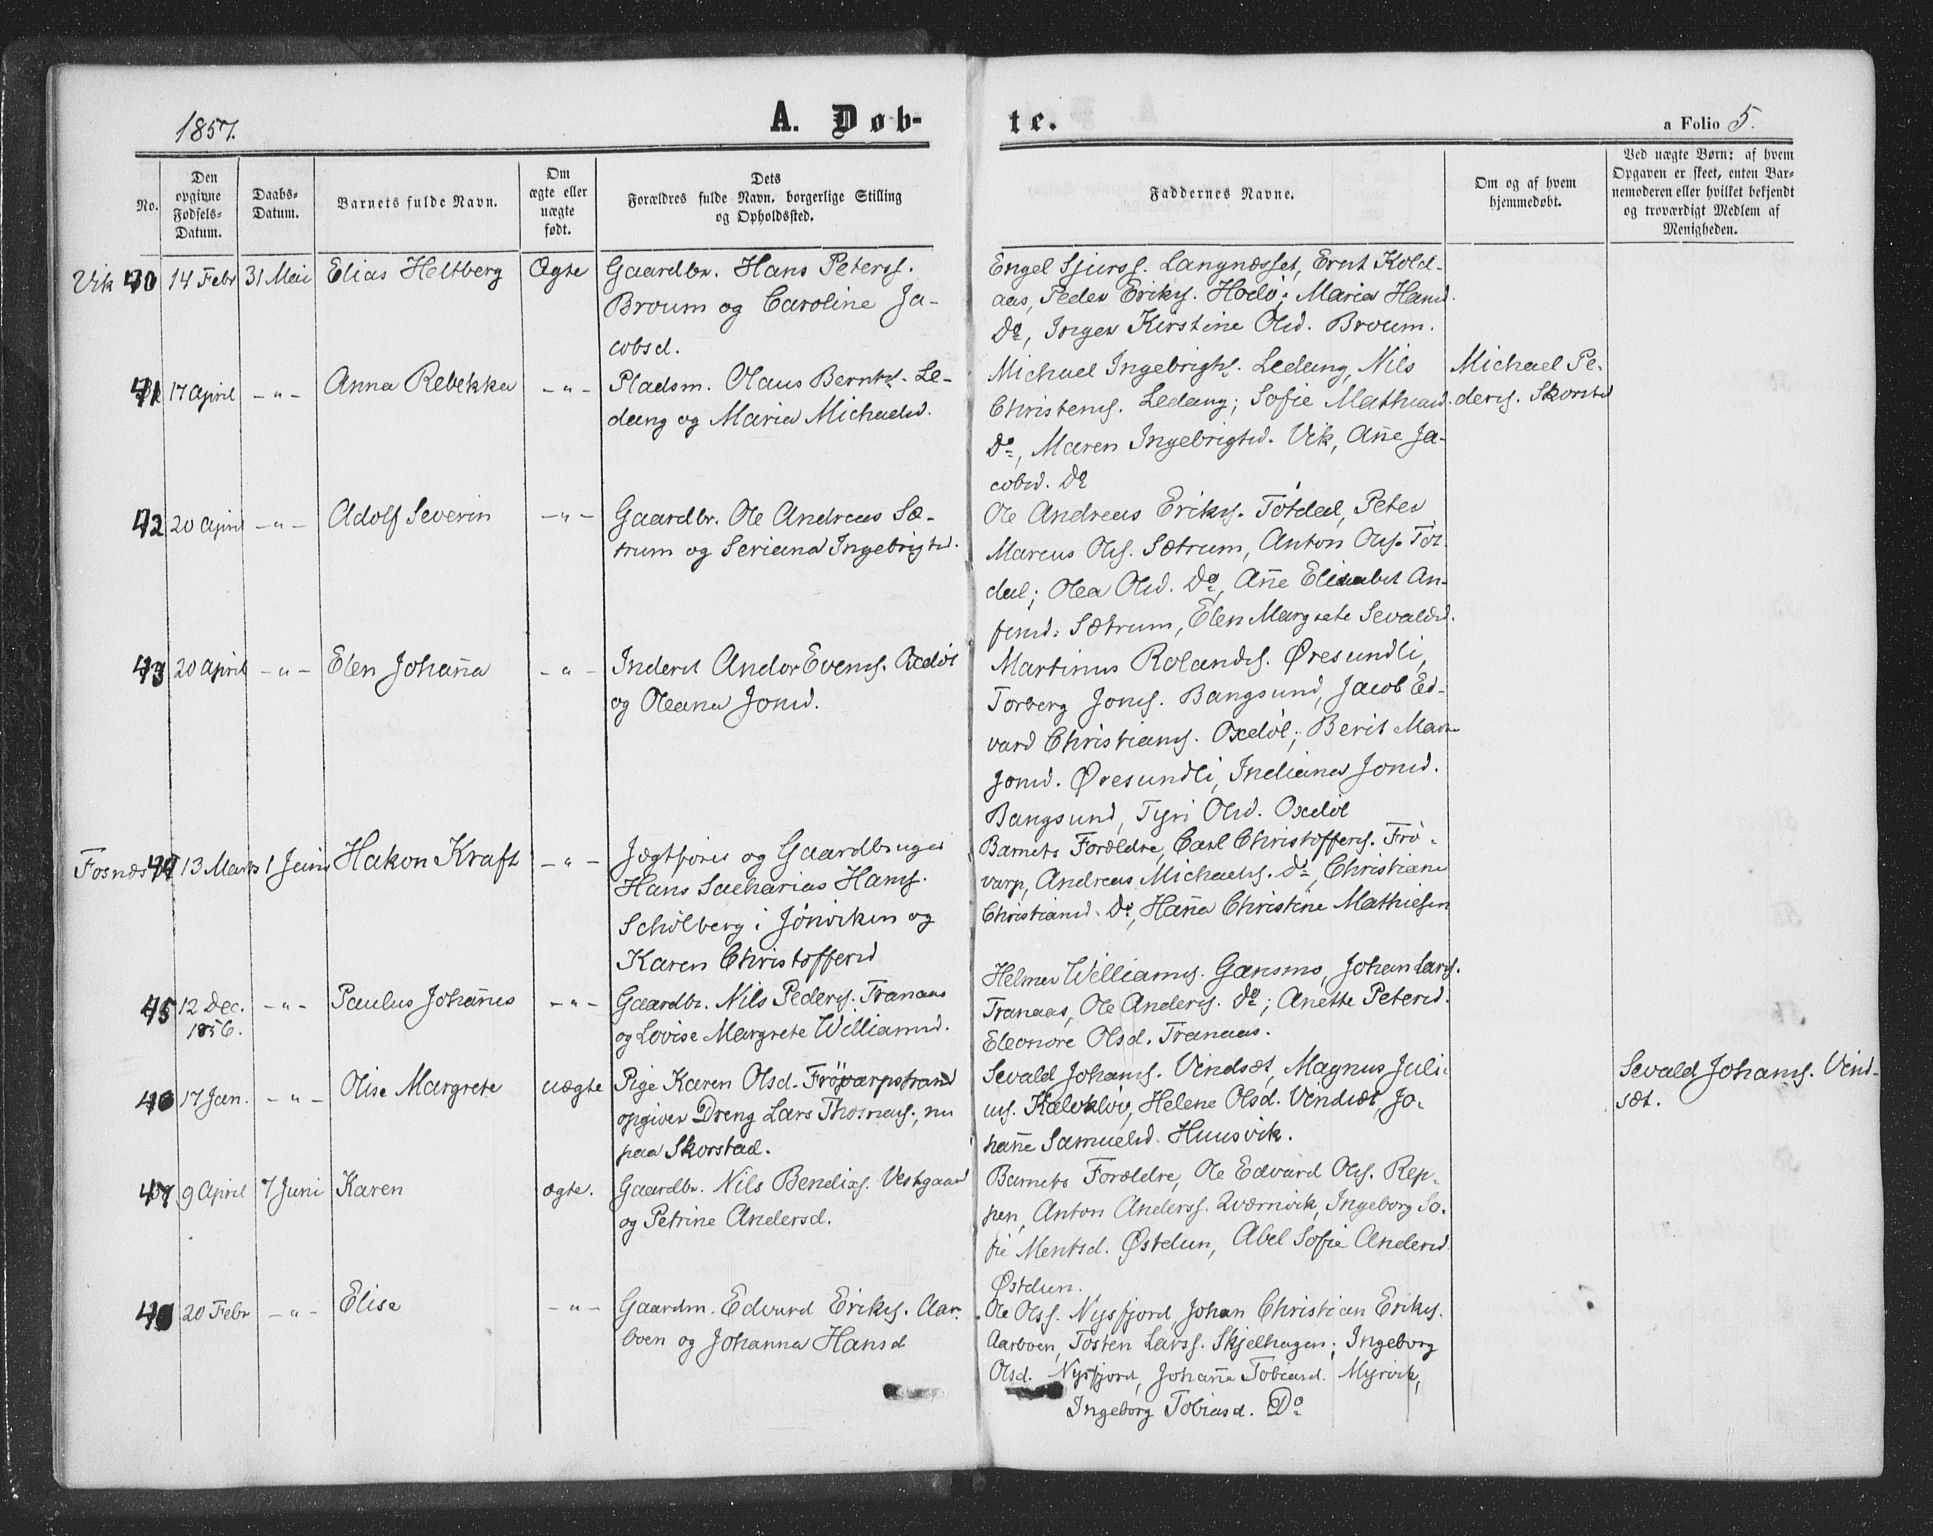 1857.
A. Døb-
te.
a Folio 5.
No.
Den
opgivne
Fødsels-
Datum.
Daabs-
Datum.
Barnets fulde Navn.
Om
ægte eller
uægte
født.
Dets
Forældres fulde Navn, borgerlige Stilling
og Opholdssted.
Faddernes Navne.
Om og af hvem
hjemmedøbt.
Ved uægte Børn: af hvem
Opgaven er skeet, enten Bar-
nemoderen eller hvilket bekjendt
og troværdigt Medlem af
Menigheden.
Vik 40 14 Febr 31 Mai Elias Heltberg Ægte
Gaardbr. Hans Peterss.
Broum og Caroline Ja-
cobsd.
Engel Sjurss. Langnæsset, Ernt Kold-
aas, Peder Eriks. Hodø; Maria Hansd.
Do, Inger Kirstine Olsd. Broum.
41 17 April - " - Anna Rebekka - " -
Pladsm. Olaus Bernts. Le-
dang og Maria Michaelsd.
Michael Ingebrigts. Ledang, Nils
Christens. Ledang; Sofie Mathiasd.
Do, Maren Ingebrigtsd. Vik, Añe Ja-
cobsd. Do
Michael Pe-
ders. Skorstad
42 20 April - " - Adolf Severin - " -
Gaardbr. Ole Andreas Sæ-
trum og Seriana Ingebrigtsd.
Ole Andreas Eriks. Tøtdal, Peter
Marcus Ols. Sætrum, Anton Ols. Tøt-
dal; Olea Olsd. Do, Añe Elisabet An-
finsd. Sætrum, Elen Margrete Sevaldsd.
43 20 April - " - Elen Johaña - " -
Inderst Andor Evens. Oxdøl
og Oleana Jonsd.
Martinus Rolands. Øresundli,
Torberg Jons. Bangsund, Jacob Ed-
vard Christians. Oxdøl; Berit Marie
Jonsd. Øresundli, Indiana Jonsd.
Bangsund, Tyri Olsd. Oxdøl
Fosnæs 44 13 Marts 1 Juni Hakon Kraft - " -
Jægtfører og Gaardbruger
Hans Sacharias Hans.
Schølberg i Jønviken og
Karen Christoffersd
Barnets Forældre, Carl Christoffers. Frø-
varp, Andreas Michaels. Do, Christiane
Christiansd. Do, Haña Christine Mathiesen
45 12 Dec. 1856. - " - Paulus Johañes - " -
Gaardbr. Nils Peders. Tranaas
og Lovise Margrete Williamsd.
Helmer Williams. Gansmo, Johan Lars.
Tranaas, Ole Anders. Do; Anette Petersd.
Eleonore Olsd. Tranaas.
46 17 Jan. - " - Olise Margrete uægte
Pige Karen Olsd. Frøvarpstrand
opgiver Dreng Lars Thomas., nu
paa Skorstad.
Sevald Johans. Vendsæt, Magnus Juli-
us. Kalvkløv, Helene Olsd. Vendsæt, Jo-
hañe Samuelsd. Huusvik.
Sevald Johans. Vend-
sæt.
47 9 April 7 Juni Karen ægte.
Gaardbr. Nils Bendixs. Vestgaard
og Petrine Andersd.
Barnets Forældre, Ole Edvard Ols. Rep-
pen, Anton Anderss. Qværnvik, Ingeborg So-
fie Mentsd. Østdun, Abel Sofie Andersd
Østdun.
48 20 Febr - " - Elise - " -
Gaardm. Edvard Eriks. Aar-
boen og Johanna Hansd
Ole Olss. Nysfjord, Johan Christian Eriks.
Aarboen, Tosten Larss. Skjelhagen; Ingeborg
Olsd. Nysfjord, Johañe Tobiasd. Myrvik,
Ingeborg Tobiasd. Do